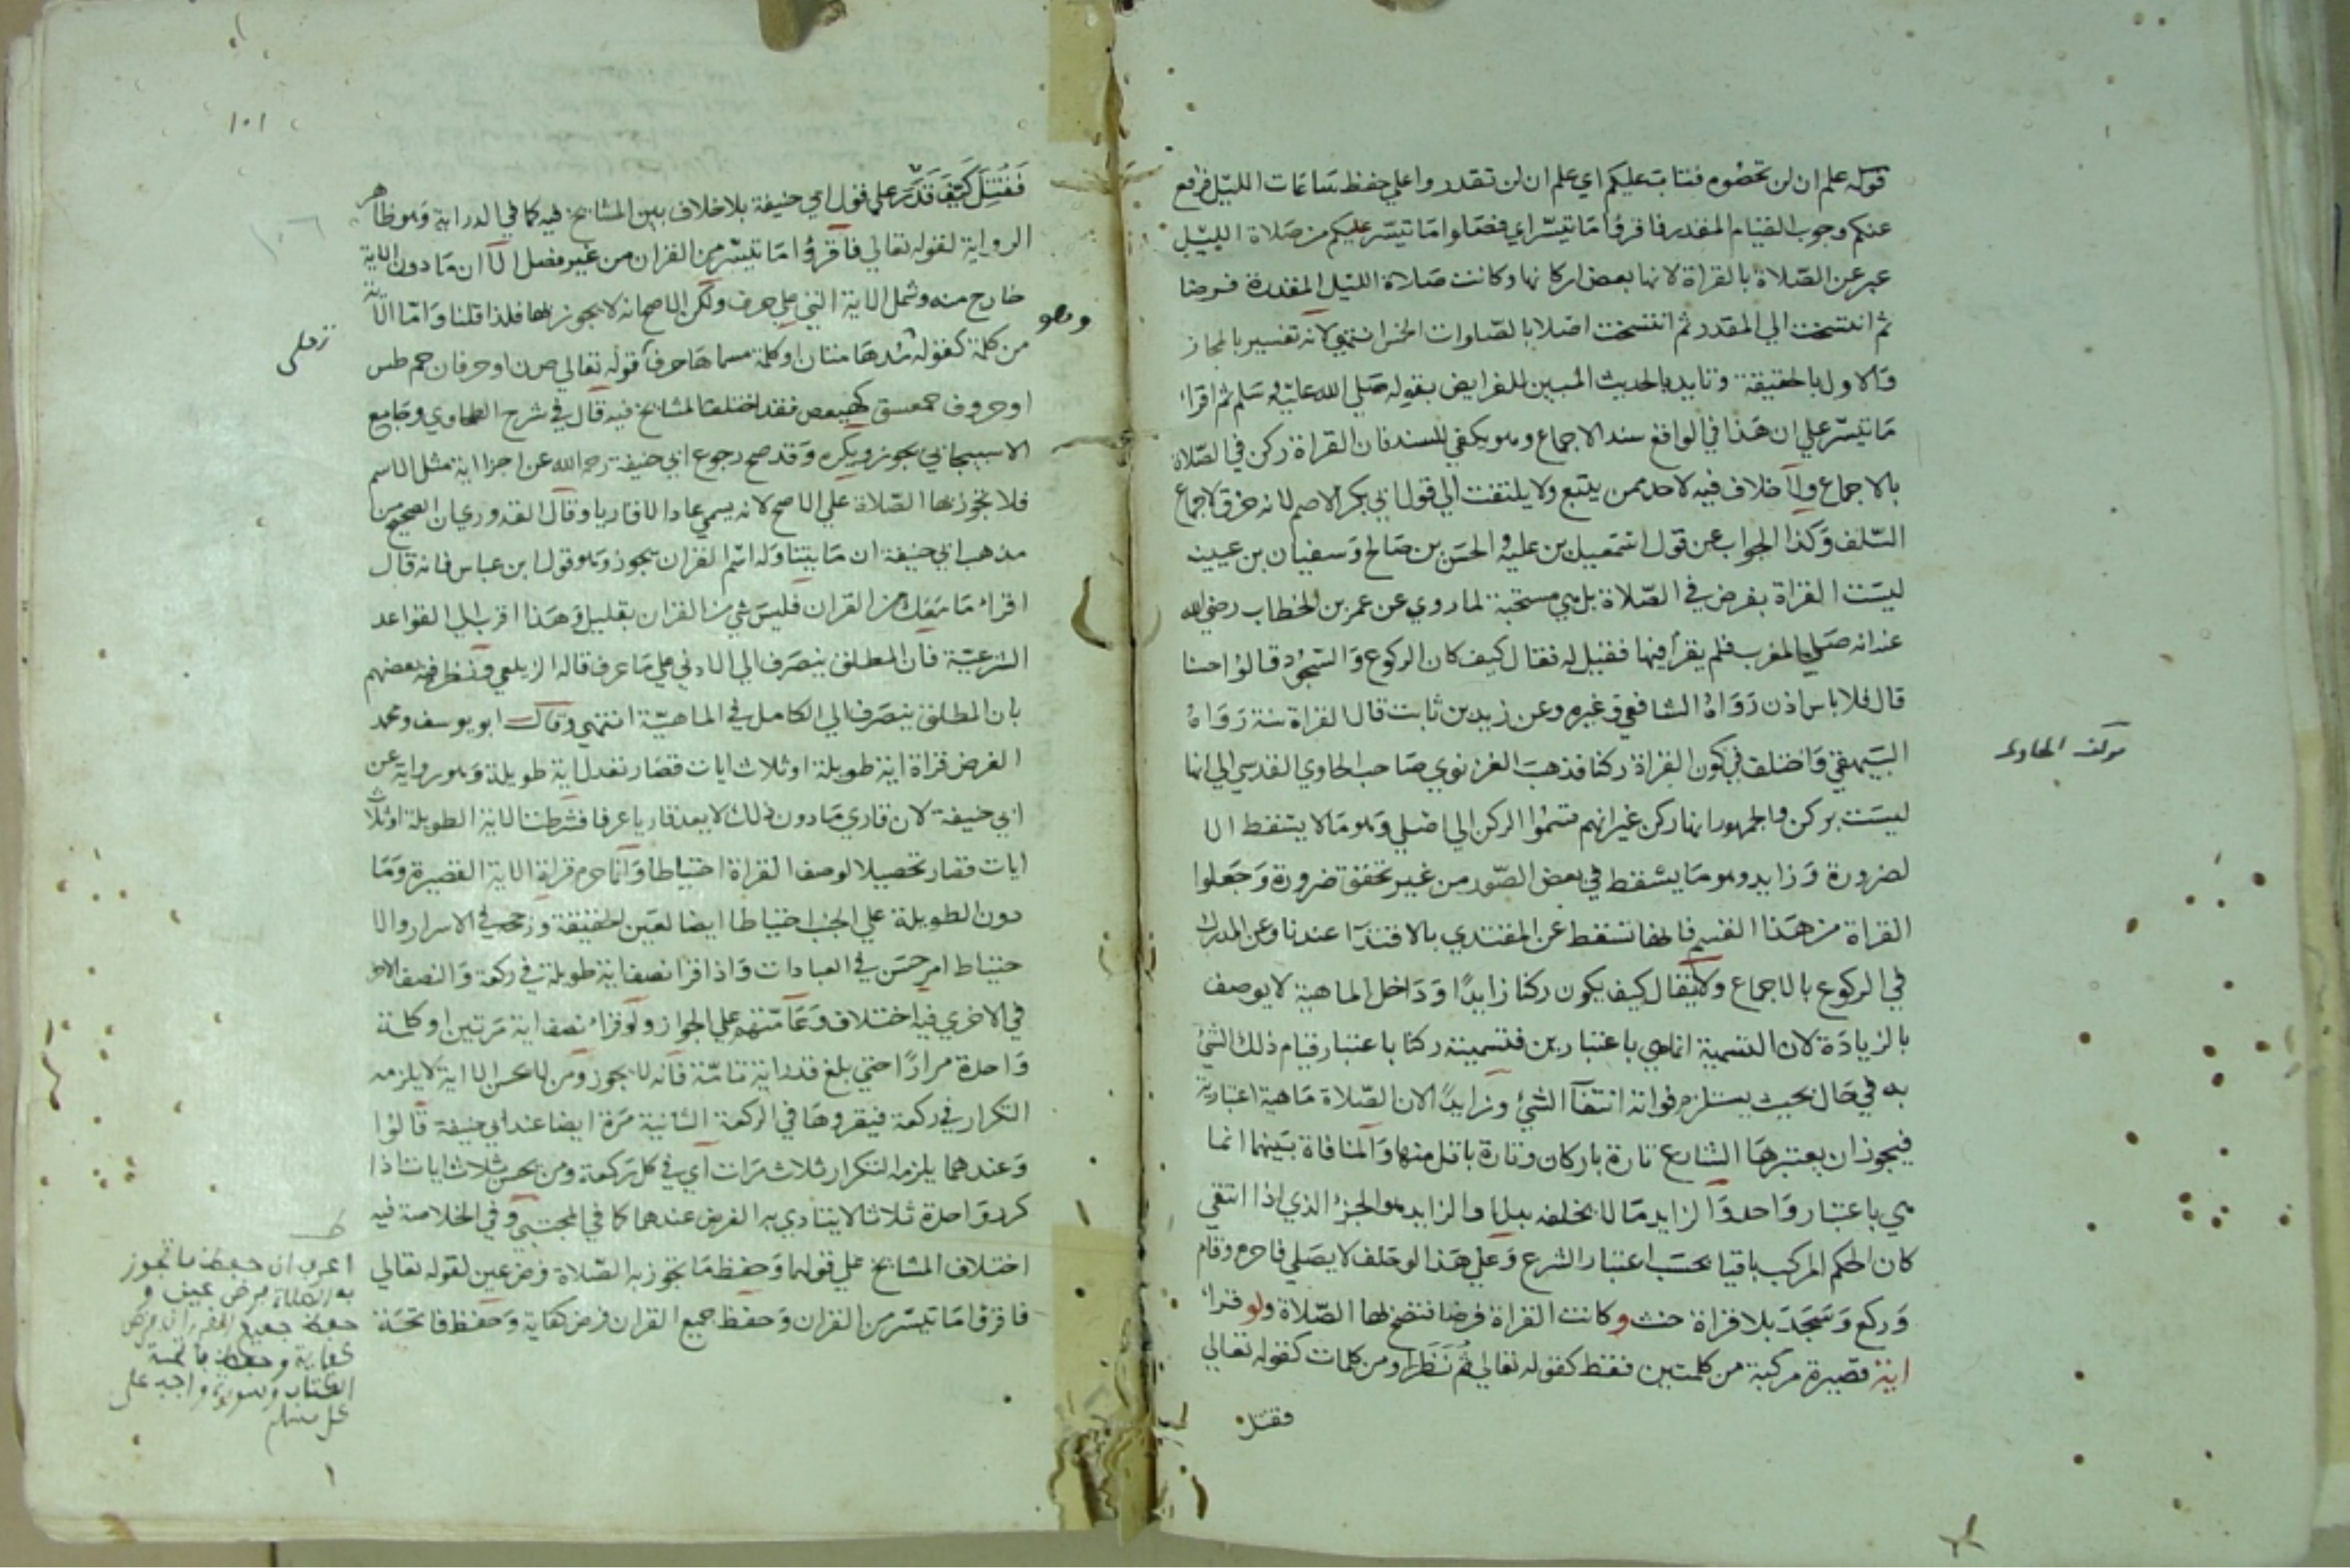 قوله علم ان لن تحصوه فتاب عليكم اي علم ان لن تقدروا علي حفظ ساعات الليل فرفع
عنكم وجوب القيام المقدر فاقرؤا ما تيسر اي فصلوا ما تيسر عليكم من صلاة الليل
عبر عن الصلاة بالقراة لانها بعض اركانها وكانت صلاة الليل المقدرة فرضا
ثم انتسخت الي المقدر ثم انتسخت اصلا بالصلوات الخمس انتهي لانه تفسير بالمجاز
والاول بالحقيقة وتايد بالحديث المبين للفرايض بقوله صلي الله عليه وسلم ثم اقرا
ما تيسر علي ان هذا في الواقع سند الاجماع وهو يكفي للسند فان القراة ركن في الصلاة
بالاجماع ولا خلاف فيه لاحد ممن يتبع ولا يلتفت الي قول ابي بكر الاصم لانه خرق لاجماع
السلف وكذا الجواب عن قول اسمعيل بن علية والحسن بن صالح وسفيان بن عيينه
ليست القراة بفرض في الصلاة بل هي مستحبة لما روي عن عمر بن الخطاب رضي الله
عنه انه صلي المغرب فلم يقرا فيها فقيل له فقال كيف كان الركوع والسجود قالوا حسنا
قال فلا باس اذن رواه الشافعي وغيره وعن زيد بن ثابت قال القراة سنة رواه
البيهقي واختلف في كون القراة ركنا فذهب الغزنوي صاحب الحاوي القدسي الي انها
ليست بركن والجمهور انها ركن غير انهم قسموا الركن الي اصلي وهو ما لا يسقط الا
لضرورة وزايد وهو ما يسقط في بعض الصور من غير تحقق ضرورة وجعلوا
القراة من هذا القسم فانها تسقط عن المقتدي بالاقتدا عندنا وعن المدرك
في الركوع بالاجماع ولا يقال كيف يكون ركنا زايدا وداخل الماهية لا يوصف
بالزيادة لان التسمية انما هي باعتبارين فتسميته ركنا باعتبار قيام ذلك الشئ
به في حال بحيث يستلزم فواته انتفآ الشئ وزايدا لان الصلاة ماهية اعتبارية
فيجوز ان يعتبرها الشارع تارة باركان وتارة باقل منها والمنافاة بينهما انما
هي باعتبار واحد والزايد ما لا يخلفه بدل والزايد هو الجزء الذي اذا انتفي
كان الحكم المركب باقيا بحسب اعتبار الشرع وعلي هذا لو حلف لا يصلي فاحرم وقام
وركع وسجد بلا قراة حنث وكانت القراة فرضا فتصح بها الصلاة ولو قرا
اية قصيرة مركبة من كلمتين فقط كقوله تعالي ثم نظر او من كلمات كقوله تعالي
فقتل
مؤلف الحاوي
١٠١
فقتل كيف قدر علي قول ابي حنيفة بلا خلاف بين المشايخ فيه كما في الدراية وهو ظاهر
الرواية لقوله تعالي فاقرؤا ما تيسر من القران من غير فصل الا ان ما دون الاية
خارج منه وشمل الاية التي هي حرف ولكن الاصح انه لا يجوز بها فلذا قلنا واما الاية
من كلمة كقوله مدهامتان او كلمة مسماها حرف قوله تعالي ص ن او حرفان حم طس
او حروف حمعسق كهيعص فقد اختلف المشايخ فيه قال في شرح الطحاوي وجامع
الاسبيجابي يجوز ويكره وقد صح رجوع ابي حنيفة رحمه الله عن اجزا اية مثل الاسم
فلا تجوز بها الصلاة علي الاصح لانه يسمي عادا لا قاريا وقال القدوري ان الصحيح من
مذهب ابي حنيفة ان ما يتناوله اسم القران يجوز وهو قول ابن عباس فانه قال
اقرا ما معك من القران فليس شي من القران بقليل وهذا اقرب الي القواعد
الشرعية فان المطلق ينصرف الي الادني علي ما عرف قاله الزيلعي ونظر فيه بعضهم
بان المطلق ينصرف الي الكامل في الماهية انتهي وقال ابو يوسف ومحمد
الفرض قراة اية طويلة او ثلاث ايات قصار تعدل اية طويلة وهو رواية عن
ابي حنيفة لان قاري ما دون ذلك لا يعد قاريا عرفا فشرطت الاية الطويلة او ثلاث
ايات قصار تحصيلا لوصف القراة احتياطا وانما حرم قراة الاية القصيرة وما
دون الطويلة علي الجنب احتياطا ايضا لعين الحقيقة ورجح في الاسرار والا
حتياط امر حسن في العبادات واذا قرا نصف اية طويلة في ركعة والنصف الاخر
في الاخري فيه اختلاف وعامتهم علي الجواز ولو قرا نصف اية مرتين او كلمة
واحدة مرارا حتي بلغ قدر اية تامة فانه لا يجوز ومن لا يحسن الا اية لا يلزمه
التكرار في ركعة فيقروها في الركعة الثانية مرة ايضا عند ابي حنيفة قالوا
وعندهما يلزمه التكرار ثلاث مرات اي في كل ركعة ومن يحسن ثلاث ايات اذا
كرر واحدة ثلاثا لا يتادي به الفرض عندهما كما في المجتبي وفي الخلاصة فيه
اختلاف المشايخ علي قولهما وحفظ ما تجوز به الصلاة فرض عين لقوله تعالي
فاقرؤا ما تيسر من القران وحفظ جميع القران فرض كفاية وحفظ فاتحة
وهو
اعرف ان حفظ ما تجوز
به الصلاة فرض عين و
حفظ جميع القران فرض
كفاية وحفظ فاتحة
الكتاب وسورة واجب على
كل مسلم